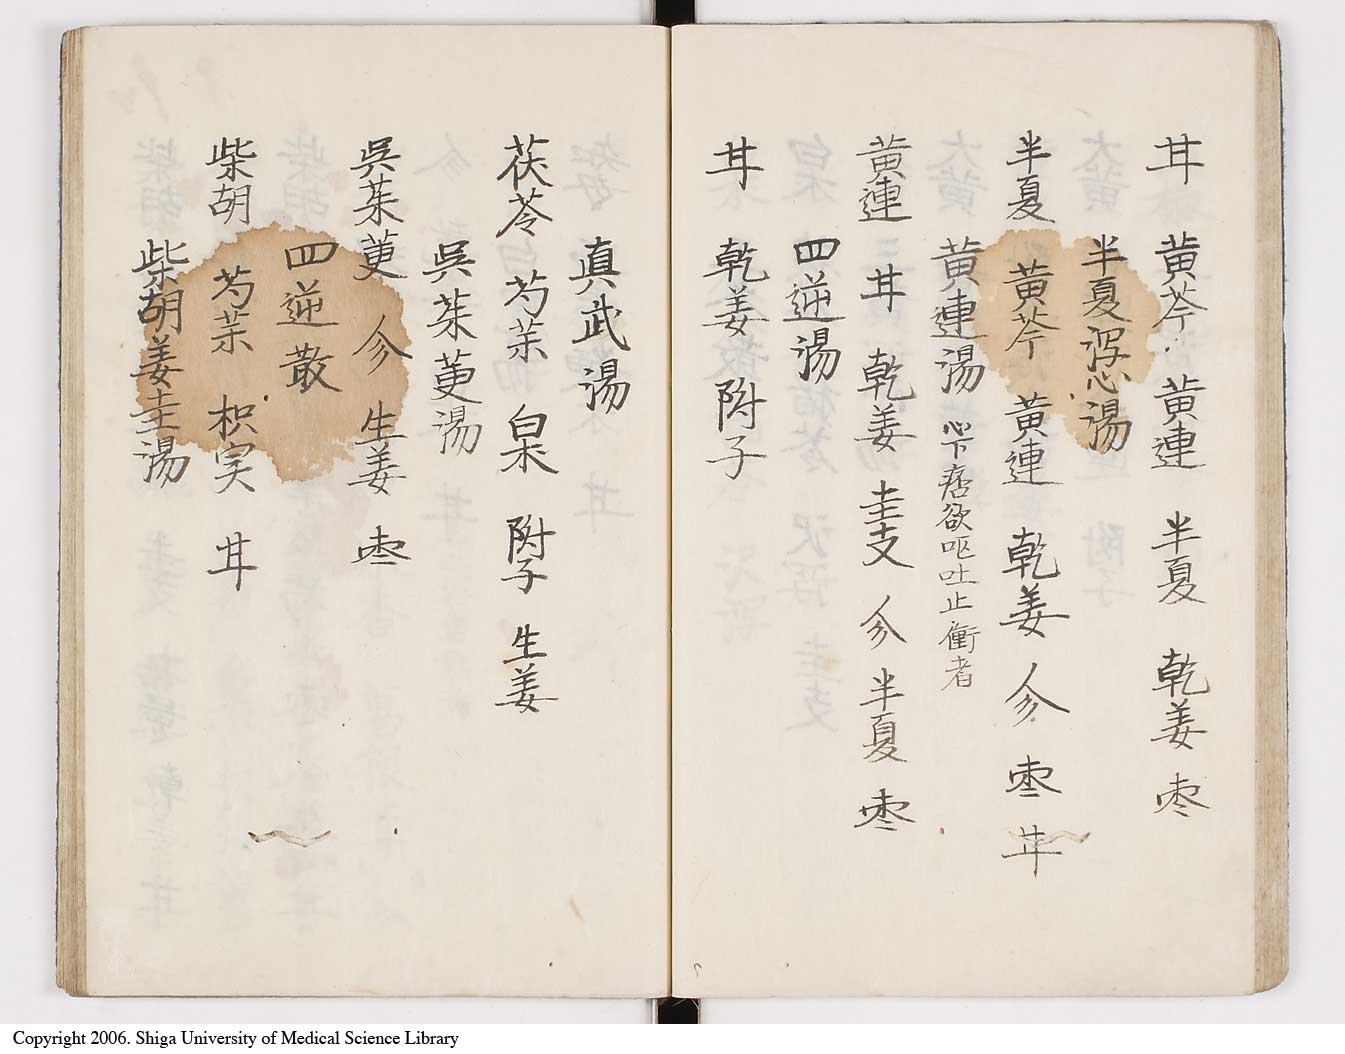 甘 黄芩 黄連 半夏 乾姜 枣
半夏泻心湯
半夏 黄芩 黄連 乾姜 参 枣 甘
黄連湯 心下痞欲呕吐止衝者
黄連 甘 乾姜 圭支 参 半夏 枣
四逆湯
甘 乾姜 附子
真武湯
茯苓 芍茱 白朮 附子 生姜
呉茱萸湯
呉茱萸 参 生姜 枣
四逆散
柴胡 芍茱 枳実 甘
柴胡姜圭湯
Copyright 2006. Shiga University of Medical Science Library